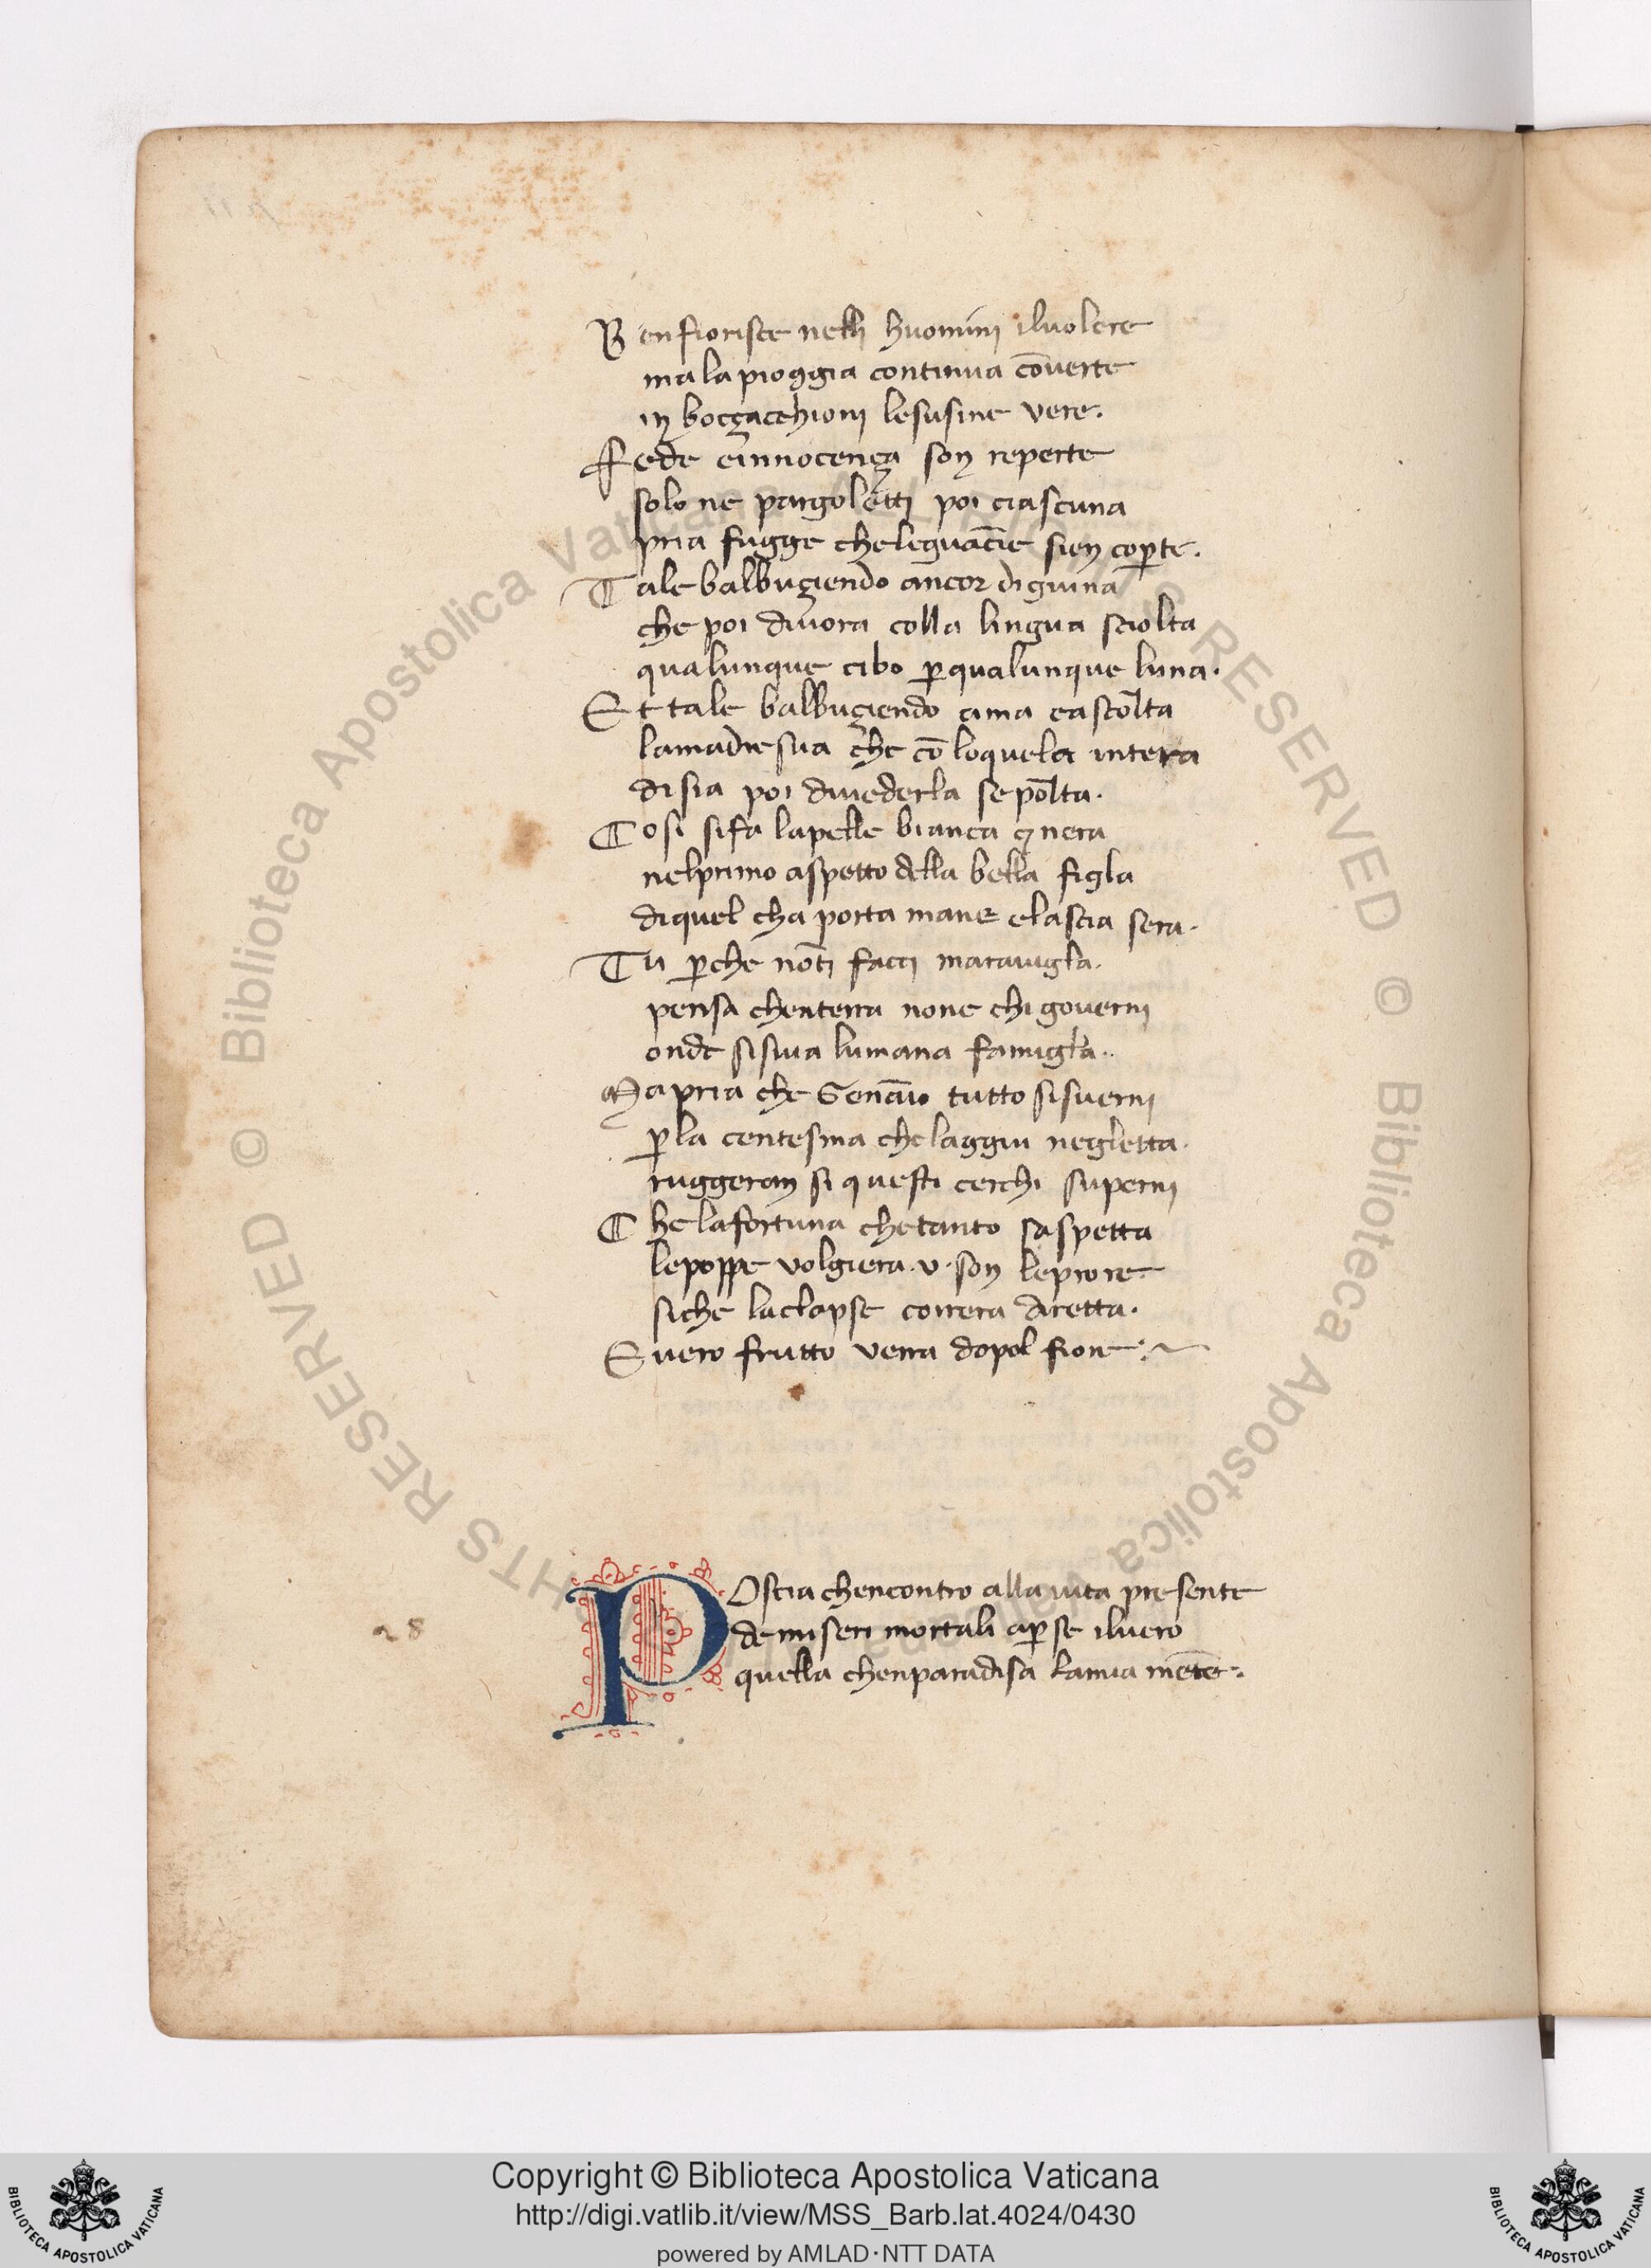 Ben fiorisce nelli huomini iluolere
ma la pioggia continua cōuerte
in bozzacchioni lesusine vere.
Fede einnocença son reperte
solo ne pargoletti poi ciascuna
pria fugge cheleguācie sien coꝑte.
Tale balbuçiendo ancor digiuna
che poi diuora colla lingua sciolta
qualunque cibo ꝑqualunque luna.
Et tale balbuçiendo ama eascolta
lamadresua che cō loquela intera
disia poi diuederla sepolta.
Cosi sifa lapelle bianca ꝫ nera
nelprimo aspetto della bella figla
diquel cha porta mane elascia sera.
Tu ꝑche nōti facci marauigla.
pensa chenterra none chi gouerni
onde sisuia lumana famigla..
Ma pria che Genāio tutto sisuerni
ꝑ la centesma chelaggiu negletta.
ruggeran si questi cerchi superni
Che lafortuna chetanto saspetta
lepoppe volgiera .v. son leprore
siche laclapse correra diretta.
Euero frutto verra dopol fiore:~
28
POscia chencontro alla uita presente
de miseri mortali aꝑse iluero
quella chenparadisa lamia mēte.
© Biblioteca Apostolica Vaticana
RESERVED
© Biblioteca Apostolica
HTS RESERVED
Copyright © Biblioteca Apostolica Vaticana
http://digi.vatlib.it/view/MSS_Barb.lat.4024/0430
powered by AMLAD·NTT DATA
BIBLIOTECA APOSTOLICA VATICANA
BIBLIOTECA APOSTOLICA VATICANA